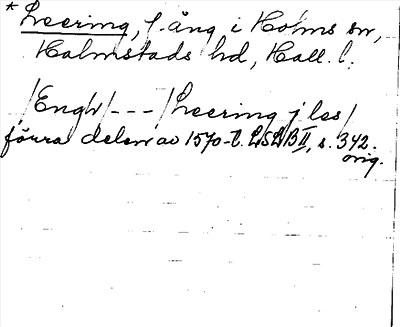 * Leering, f. äng i Holms sn,
Halmstads hd, Hall. l.
/Engh/ --- /Leering j lss/
förra delen av 1570-t. LSLB II, s. 342.
orig.